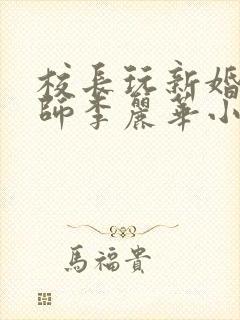 校長玩新婚
師李麗華小
馬福貴